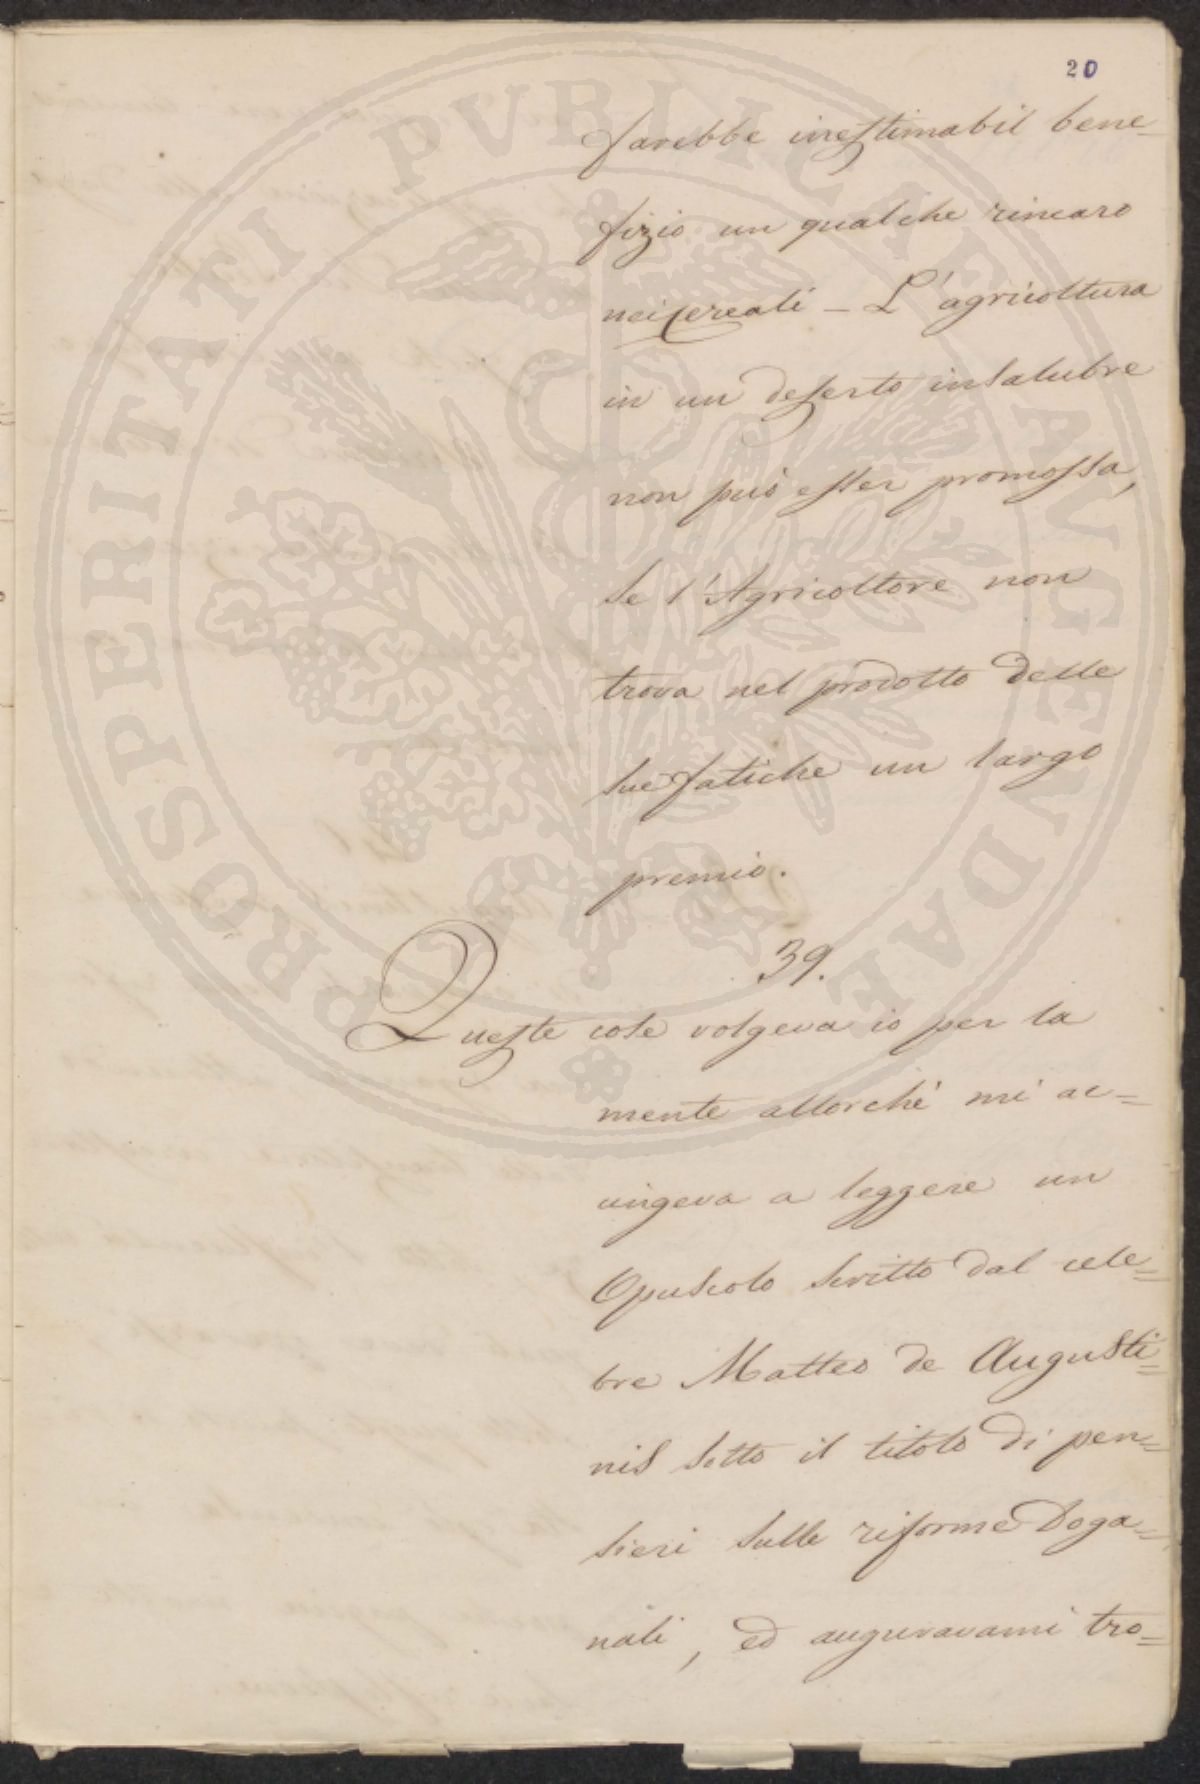 20
sarebbe inestimabil bene-
fizio un qualche rincaro
nei Cereali - L'agricoltura
in un deserto insalubre
non può esser promossa,
se l'Agricoltore non
trova nel prodotto delle
sue fatiche un largo
premio.
39.
Queste cose volgeva io per la
mente allorchè mi ac=
cingeva a leggere un
Opuscolo scritto dal cele=
bre Matteo de Augusti=
nis sotto il titolo di pen=
sieri sulle riforme Doga=
nali, ed auguravami tro=
PROSPERITATI PVBLICAE AVGENDAE